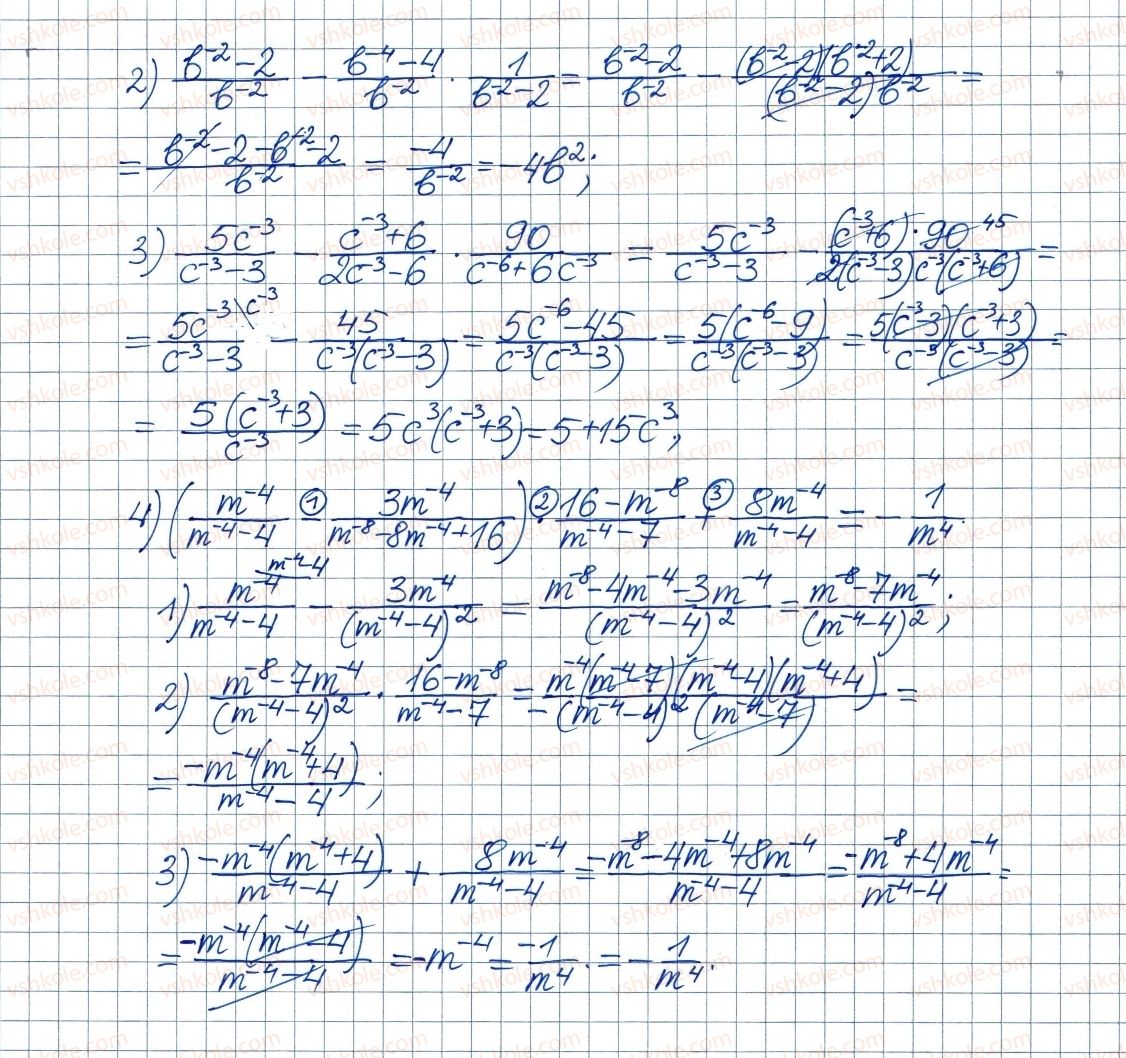 2) (b⁻² − 2)/b⁻² − (b⁻⁴ − 4)/b⁻² · 1/(b⁻² − 2) = (b⁻² − 2)/b⁻² − (b⁻² − 2)(b⁻² + 2)/((b⁻² − 2)b⁻²) =
= (b⁻² − 2 − b⁻² − 2)/b⁻² = −4/b⁻² = −4b²;
3) 5c⁻³/(c⁻³ − 3) − (c⁻³ + 6)/(2c⁻³ − 6) · 90/(c⁻⁶ + 6c⁻³) = 5c⁻³/(c⁻³ − 3) − (c⁻³ + 6) · 90 45/(2(c⁻³ − 3)c⁻³(c⁻³ + 6)) =
= 5c⁻³ \c⁻³/(c⁻³ − 3) − 45/(c⁻³(c⁻³ − 3)) = (5c⁻⁶ − 45)/(c⁻³(c⁻³ − 3)) = 5(c⁻⁶ − 9)/(c⁻³(c⁻³ − 3)) = 5(c⁻³ − 3)(c⁻³ + 3)/(c⁻³(c⁻³ − 3)) =
= 5(c⁻³ + 3)/c⁻³ = 5c³(c⁻³ + 3) = 5 + 15c³;
4) (m⁻⁴/(m⁻⁴ − 4) ① − 3m⁻⁴/(m⁻⁸ − 8m⁻⁴ + 16)) ② · (16 − m⁻⁸)/(m⁻⁴ − 7) ③ + 8m⁻⁴/(m⁻⁴ − 4) = − 1/m⁴.
1) m⁻⁴ \m⁻⁴ − 4/(m⁻⁴ − 4) − 3m⁻⁴/(m⁻⁴ − 4)² = (m⁻⁸ − 4m⁻⁴ − 3m⁻⁴)/(m⁻⁴ − 4)² = (m⁻⁸ − 7m⁻⁴)/(m⁻⁴ − 4)²;
2) (m⁻⁸ − 7m⁻⁴)/(m⁻⁴ − 4)² · (16 − m⁻⁸)/(m⁻⁴ − 7) = − m⁻⁴(m⁻⁴ − 7)(m⁻⁴ − 4)(m⁻⁴ + 4)/((m⁻⁴ − 4)²(m⁻⁴ − 7)) =
= −m⁻⁴(m⁻⁴ + 4)/(m⁻⁴ − 4);
3) −m⁻⁴(m⁻⁴ + 4)/(m⁻⁴ − 4) + 8m⁻⁴/(m⁻⁴ − 4) = (−m⁻⁸ − 4m⁻⁴ + 8m⁻⁴)/(m⁻⁴ − 4) = (−m⁻⁸ + 4m⁻⁴)/(m⁻⁴ − 4) =
= −m⁻⁴(m⁻⁴ − 4)/(m⁻⁴ − 4) = −m⁻⁴ = −1/m⁴. = − 1/m⁴.
vshkole.com